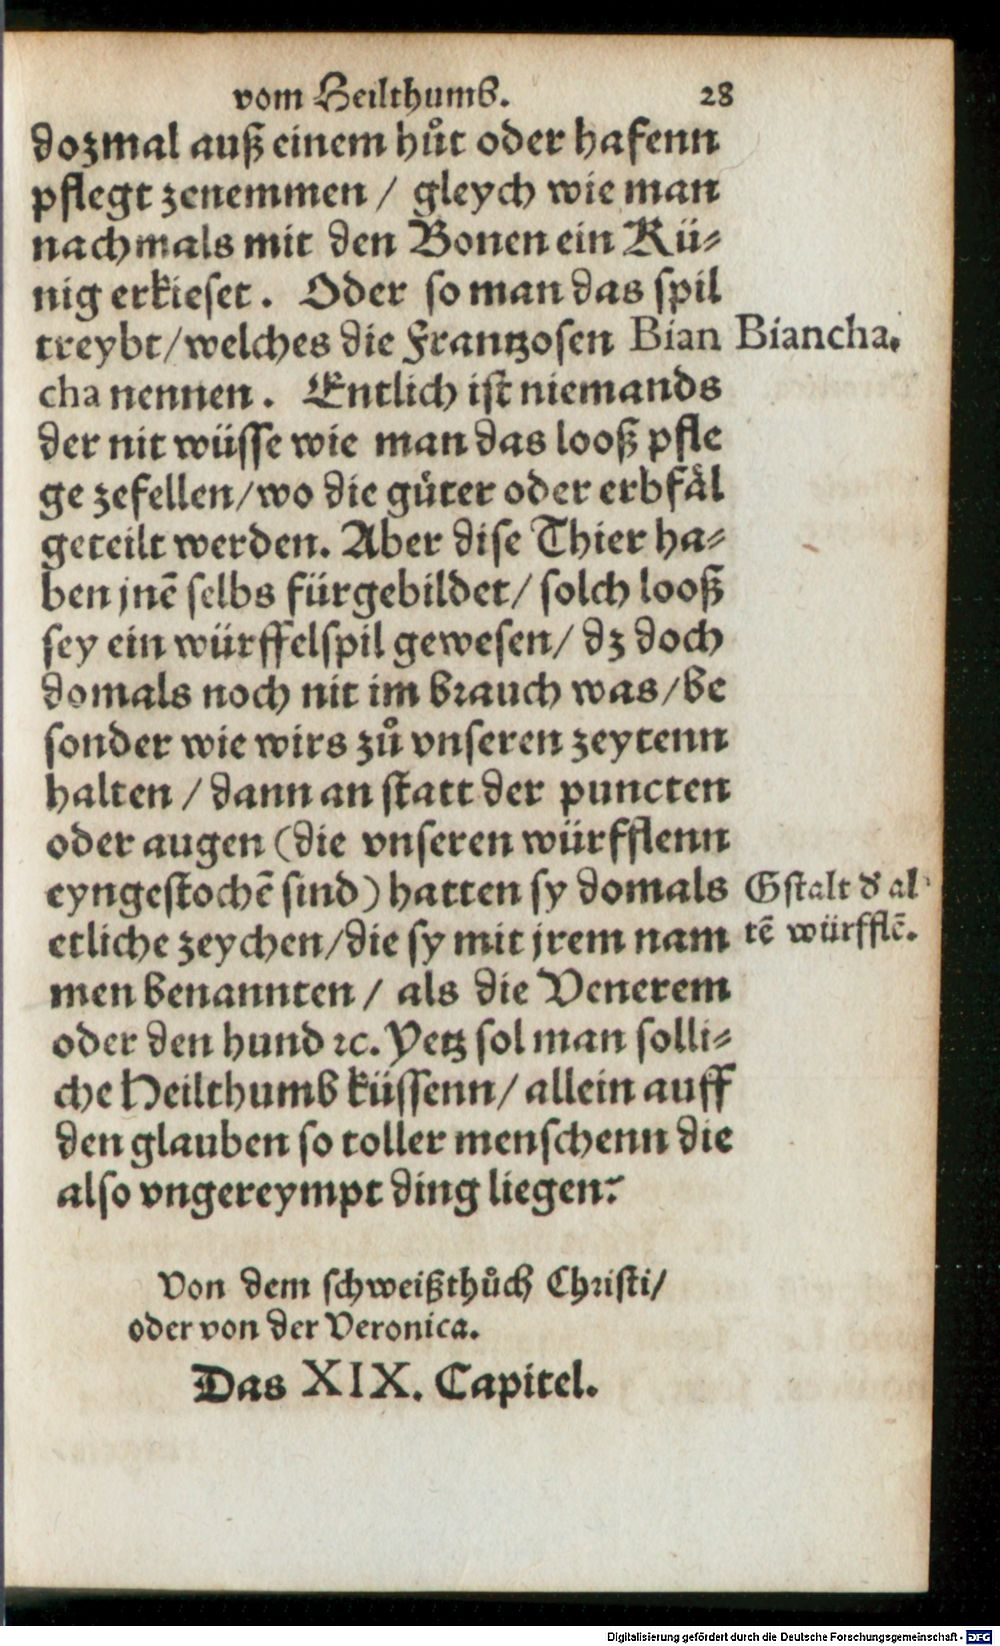 vom Heilthumb. 28
dozmal auß einem huͦt oder hafenn
pflegt zenemmen / gleych wie man
nachmals mit den Bonen ein Kü⸗
nig erkieset. Oder so man das spil
treybt/welches die Frantzosen Bian
Biancha.
cha nennen. Entlich ist niemands
der nit wüsse wie man das looß pfle
ge zefellen/wo die guͤter oder erbfaͤl
geteilt werden. Aber dise Thier ha⸗
ben jnē selbs fürgebildet/ solch looß
sey ein würffelspil gewesen/ dz doch
domals noch nit im brauch was/be
sonder wie wirs zuͦ vnseren zeytenn
halten / dann an statt der puncten
oder augen (die vnseren würfflenn
eyngestochē sind) hatten sy domals
etliche zeychen/die sy mit jrem nam
Gstalt d' al⸗
tē würfflē.
men benannten / als die Venerem
oder den hund ꝛc. Yetz sol man solli⸗
che Heilthumb küssenn/ allein auff
den glauben so toller menschenn die
also vngereympt ding liegen?
Von dem schweißthuͦch Christi/
oder von der Veronica.
Das XIX. Capitel.
Digitalisierung gefördert durch die Deutsche Forschungsgemeinschaft - DFG